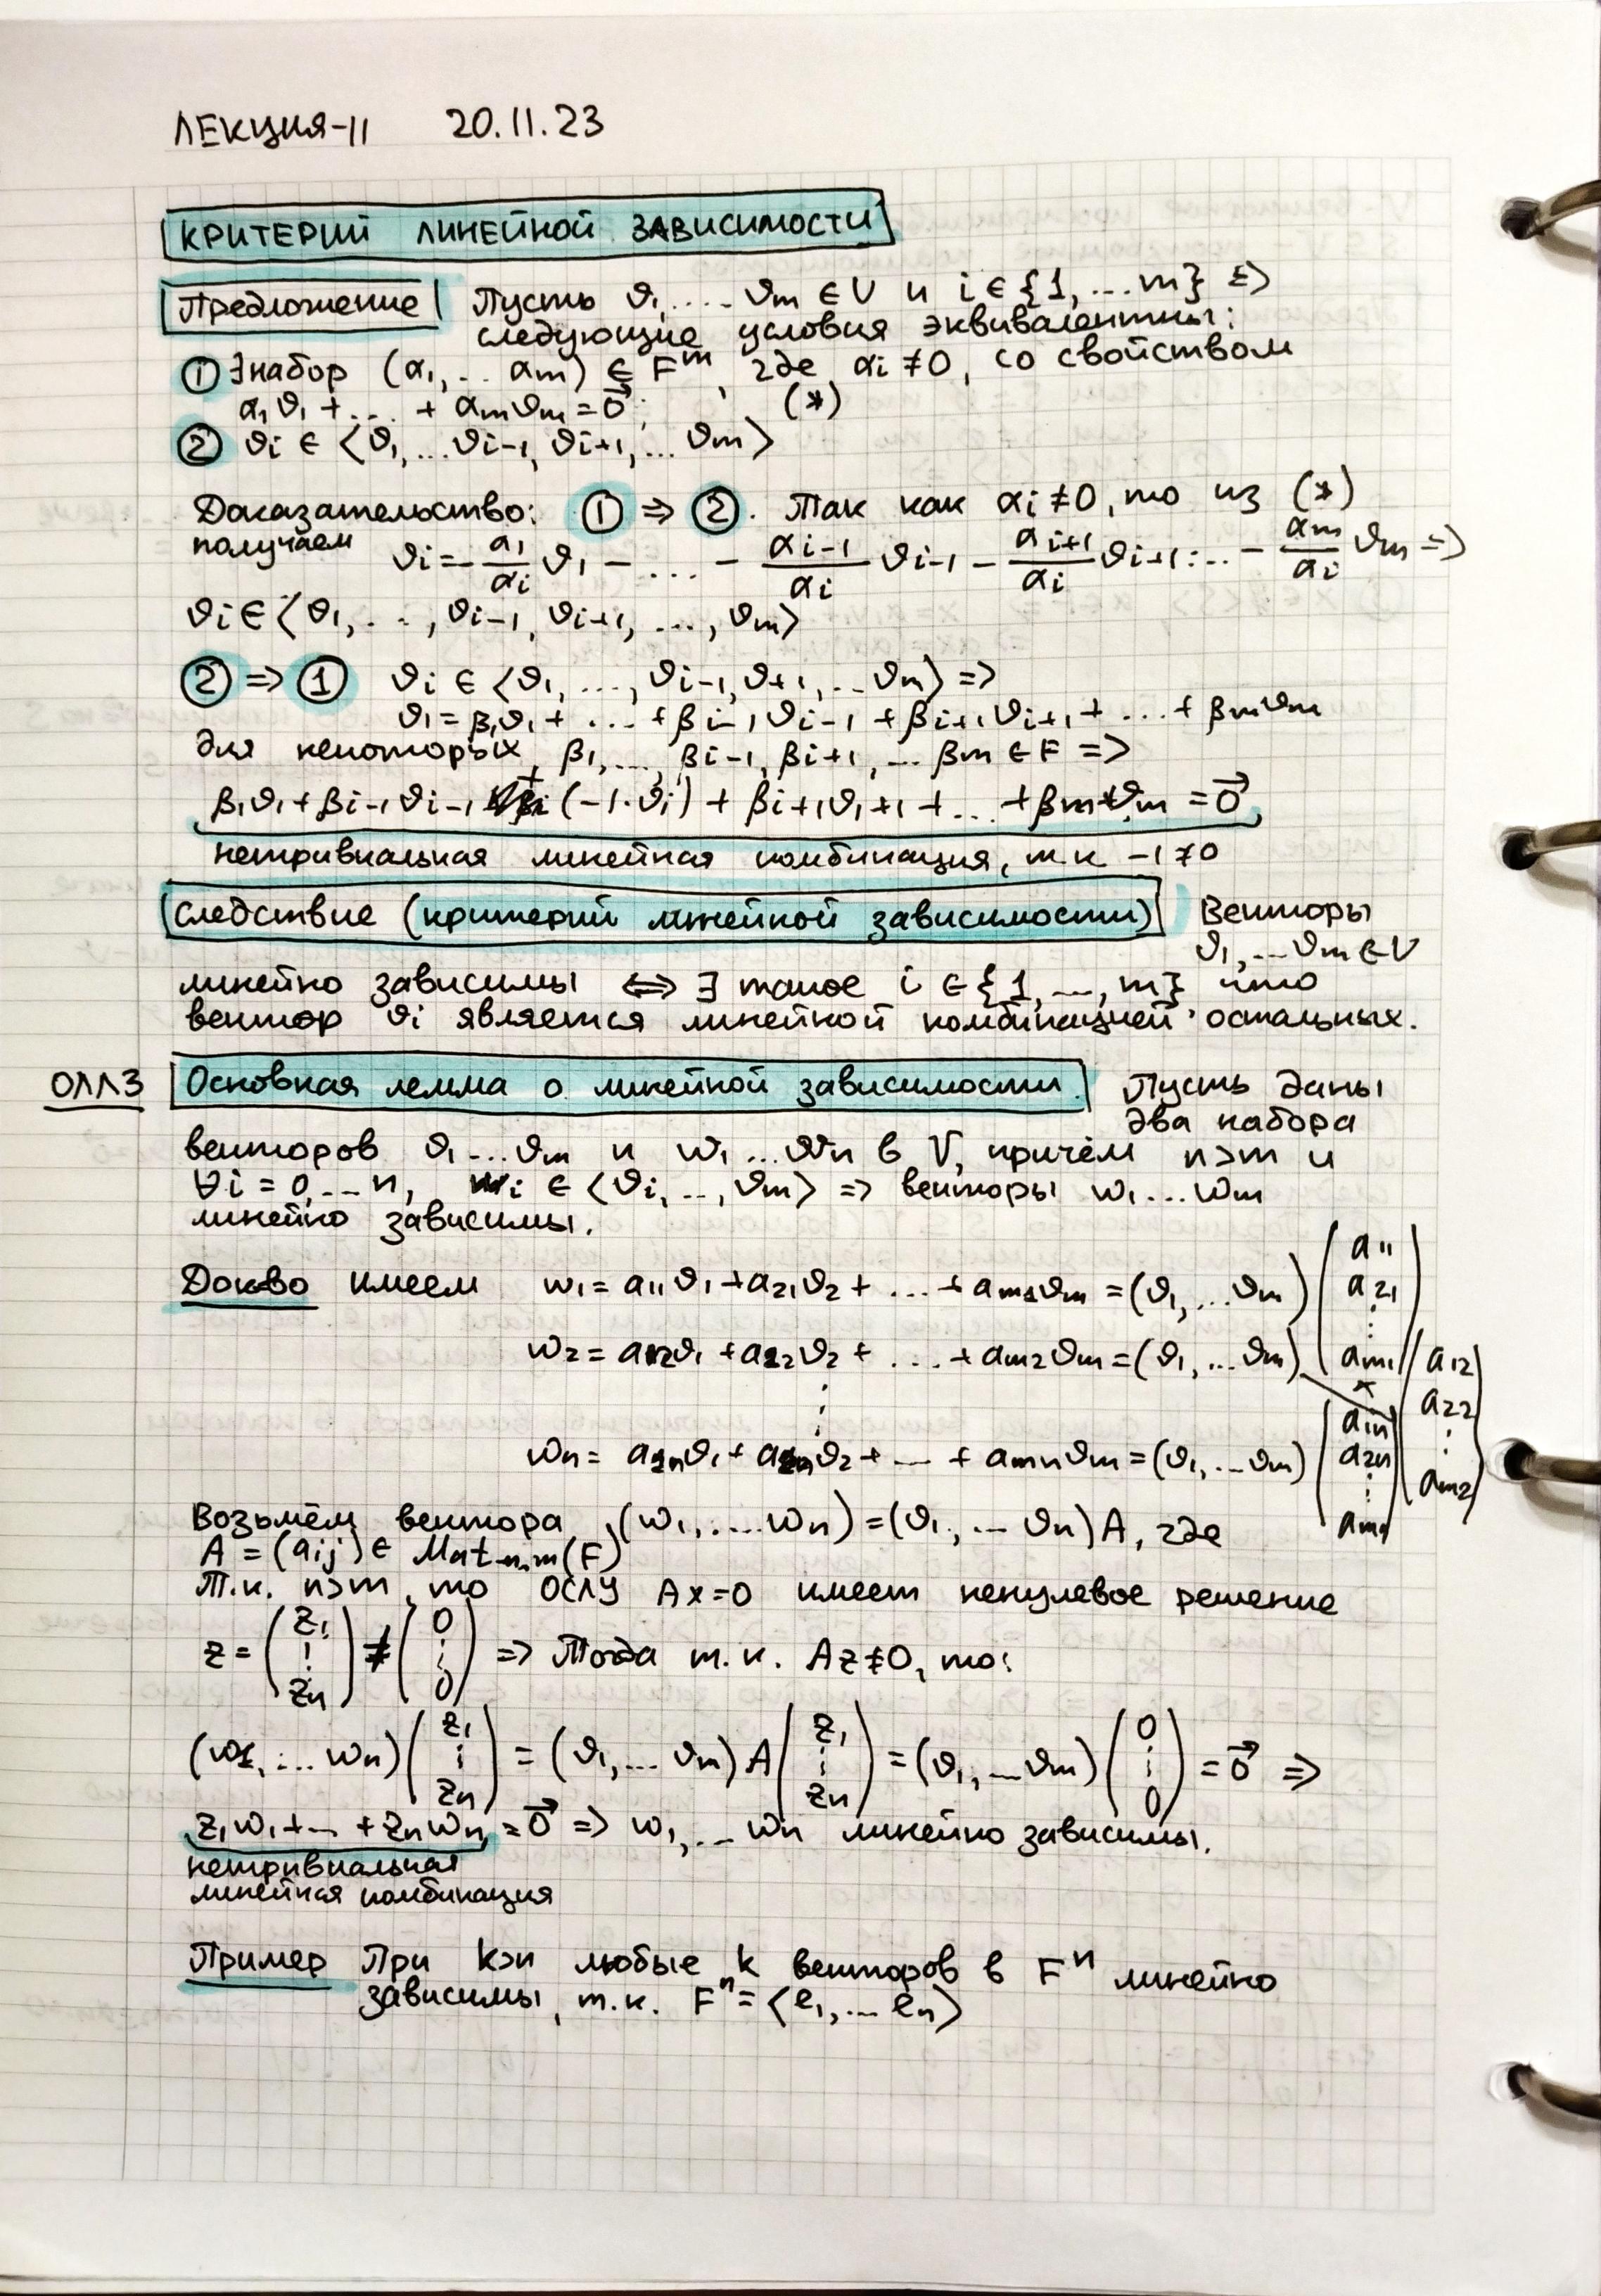 ЛЕКЦИЯ-11 20.11.23
КРИТЕРИЙ ЛИНЕЙНОЙ ЗАВИСИМОСТИ
Предложение Пусть v₁, ... vₘ ∈ V и i ∈ {1, ... m} =>
следующие условия эквивалентны:
① ∃ набор (α₁, .. αₘ) ∈ Fᵐ, где αᵢ ≠ 0, со свойством
α₁v₁ + ... + αₘvₘ = 0⃗; (*)
② vᵢ ∈ ⟨v₁, ... vᵢ₋₁, vᵢ₊₁, ... vₘ⟩
Доказательство: ① => ②. Так как αᵢ ≠ 0, то из (*)
получаем vᵢ = - α₁/αᵢ v₁ - ... - αᵢ₋₁/αᵢ vᵢ₋₁ - αᵢ₊₁/αᵢ vᵢ₊₁ ... - αₘ/αᵢ vₘ =>
vᵢ ∈ ⟨v₁, ..., vᵢ₋₁, vᵢ₊₁, ..., vₘ⟩
② => ① vᵢ ∈ ⟨v₁, ..., vᵢ₋₁, v₊₁, ... vₘ⟩ =>
v₁ = β₁v₁ + ... + βᵢ₋₁vᵢ₋₁ + βᵢ₊₁vᵢ₊₁ + ... + βₘvₘ
для некоторых β₁, ..., βᵢ₋₁, βᵢ₊₁, ... βₘ ∈ F =>
β₁v₁ + βᵢ₋₁vᵢ₋₁ + (-1·vᵢ) + βᵢ₊₁v₁₊₁ + ... + βₘvₘ = 0⃗
нетривиальная линейная комбинация, т.к. -1 ≠ 0
Следствие (критерий линейной зависимости) Векторы
v₁, ... vₘ ∈ V
линейно зависимы <=> ∃ такое i ∈ {1, ..., m} что
вектор vᵢ является линейной комбинацией остальных.
ОЛЛЗ Основная лемма о линейной зависимости. Пусть даны
два набора
векторов v₁ ... vₘ и w₁ ... wₙ в V, причём n>m и
∀i = 0, ... n, wᵢ ∈ ⟨vᵢ, .., vₘ⟩ => векторы w₁ ... wₘ
линейно зависимы.
Докво имеем w₁ = a₁₁v₁ + a₂₁v₂ + ... + aₘ₁vₘ = (v₁, ... vₘ) (a₁₁ a₂₁ ⋮ aₘ₁)
w₂ = a₁₂v₁ + a₂₂v₂ + ... + aₘ₂vₘ = (v₁, ... vₘ) (a₁₂ a₂₂ ⋮ aₘ₂)
⋮
wₙ = a₁ₙv₁ + a₂ₙv₂ + ... + aₘₙvₘ = (v₁, ... vₘ) (a₁ₙ a₂ₙ ⋮ aₘₙ)
Возьмём вектора (w₁, .... wₙ) = (v₁, ... vₙ) A, где
A = (aᵢⱼ) ∈ Matₙₓₘ(F)
Т.к. n>m, то ОСЛУ Ax=0 имеет ненулевое решение
z = (z₁ ⋮ zₙ) ≠ (0 ⋮ 0) => Тогда т.к. Az≠0, то:
(w₁, ... wₙ) (z₁ ⋮ zₙ) = (v₁, ... vₘ) A (z₁ ⋮ zₙ) = (v₁, ... vₘ) (0 ⋮ 0) = 0⃗ =>
z₁w₁ + ... + zₙwₙ = 0⃗ => w₁, ... wₙ линейно зависимы.
нетривиальная
линейная комбинация
Пример При k>n любые k векторов в Fⁿ линейно
зависимы, т.к. Fⁿ = ⟨e₁, ... eₙ⟩